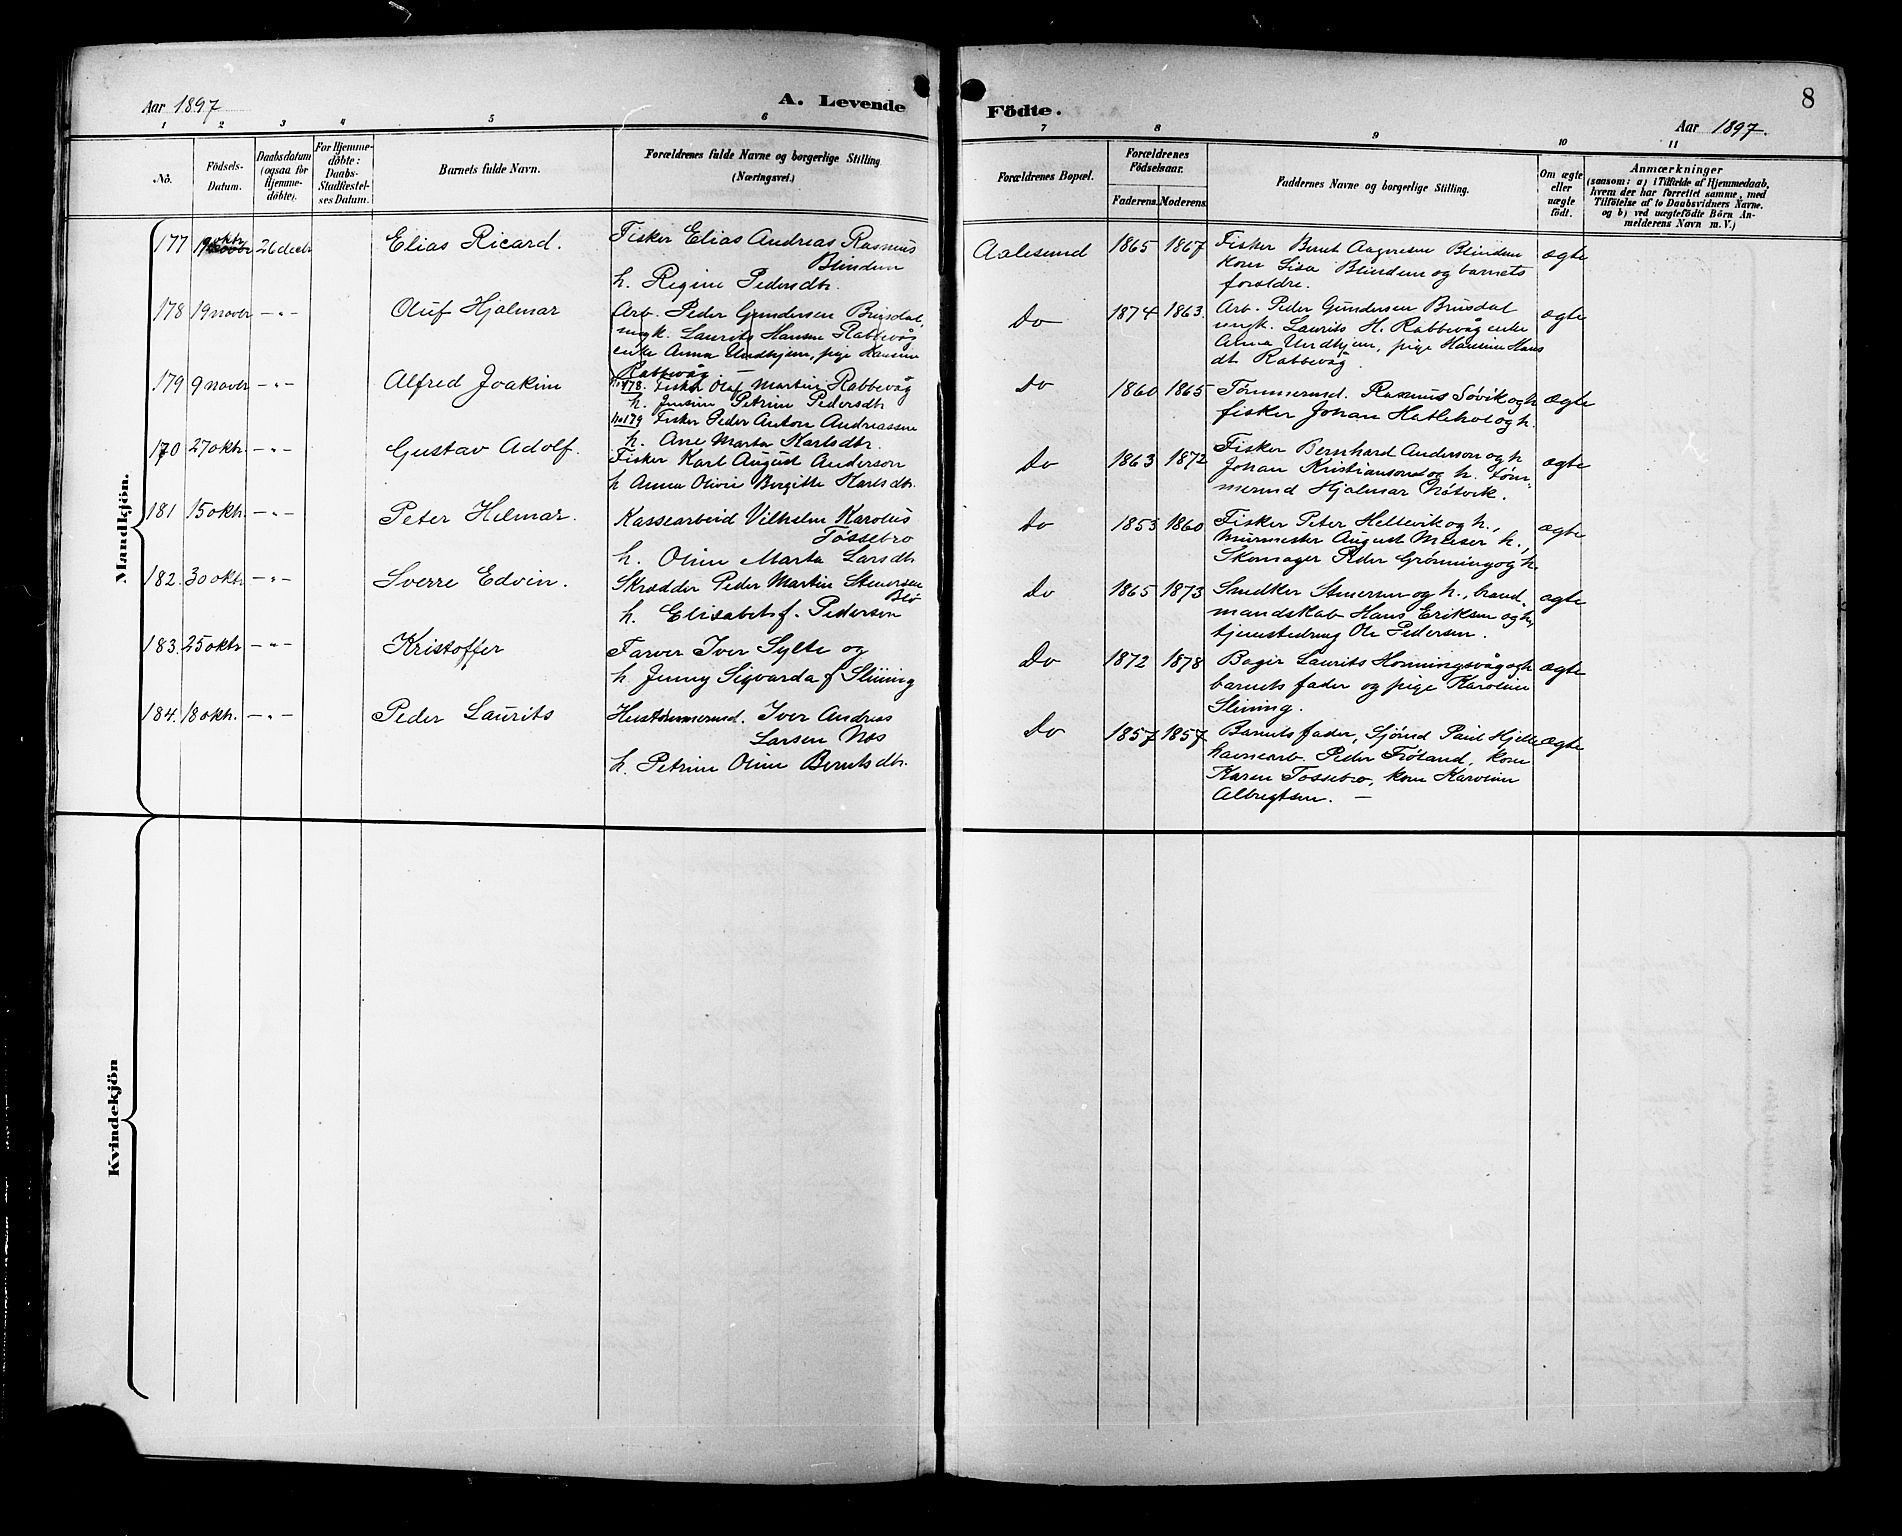 Aar 1897
A. Levende
Födte.
8
Aar 1897.
1 2 3 4 5 6 7 8 9 10 11
No.
Födsels-Datum.
Daabsdatum (ogsaa for Hjemme-döbte).
For Hjemme-döbte: Daabs-Stadfæstel-ses Datum.
Barnets fulde Navn.
Forældrenes fulde Navne og borgerlige Stilling
(Næringsvei.)
Forældrenes Bopæl.
Forældrenes Födselsaar.
Faderens. Moderens.
Faddernes Navne og borgerlige Stilling.
Om ægte eller uægte födt.
Anmærkninger
(saasom: a) i Tilfælde af Hjemmedaab,
hvem der har forrettet samme, med
Tilföielse af to Daabsvidners Navne.
og b) ved uægtefödte Börn An-
melderens Navn m. V.)
Mandkjön.
177 19 oktr 26 decbr Elias Ricard.
Fisker Elias Andreas Rasmus
Blindem
h. Regine Pedersdtr.
Aalesund 1865 1867
Fisker Bernt Blindem
kone Lisa Blindem og barnets
forældre.
ægte
178 19 novbr -"- Oluf Hjalmar
Arb. Peder Gundersen Brusdal,
ungk. Laurits Hansen Rabbevåg
enke Anna Undhjem, pige Hansine
Rabbevåg. —
No 178. Fisker Olaf Martin Rabbevåg
h. Jensine Petrine Pedersdtr
Do 1874 1863.
Arb. Peder Gundersen Brusdal
ungk. Laurits H. Rabbevåg enke
Anna Undhjem, pige Hansine Hans
dt. Rabbevåg.
ægte
179 9 novbr -"- Alfred Joakim
No 179 Fisker Peder Anton Andreassen
h. Ane Marta Karlsdtr.
Do 1860 1865
Tømmermd. Rasmus Søvik og h.
fisker Johan Hatlehol og h.
ægte
170 27 oktr. -"- Gustav Adolf.
Fisker Karl August Anderson
h Anna Olivie Bergitte Karlsdtr.
Do 1863 1872
Fisker Bernhard Anderson og h
Johan Kristianson og h. tøm-
mermd Hjalmar Nåtvik.
ægte
181 15 oktr. -"- Peter Hilmar.
Kassearbeid Vilhelm Karolus
Tøssebro
h. Oline Marta Larsdtr
Do 1853 1860
Fisker Peter Hellevik og h.,
Murmester August h.,
Skomager Peder Grønning og h.
ægte
182. 30 oktr. -"- Sverre Edvin.
Skrædder Peder Martin Steversen
Blø
h. Elisabet f. Pedersen
Do 1865 1873
Snedker og h., brand-
mandskab Hans Eriksen og h,
tjenestedreng Ole Pedersen.
ægte
183. 25 oktr -"- Kristoffer
Farver Iver Sylte og
h. Jenny Sigvarda f Slining
Do 1872 1878
Bager Laurits Honningsvåg og h
barnets fader og pige Karoline
Slining.
ægte
184. 18 oktr. -"- Peder Laurits
Hustømmermd. Iver Andreas
Larsen Nos
h. Petrine Oline Berntsdtr.
Do 1857 1857
Barnets fader, Sjømd Paul Hjelle
havnearb. Peder Frøland, kone
Karen Tøssebro, kone Karoline
Albregtsen. —
ægte
Kvindekjön